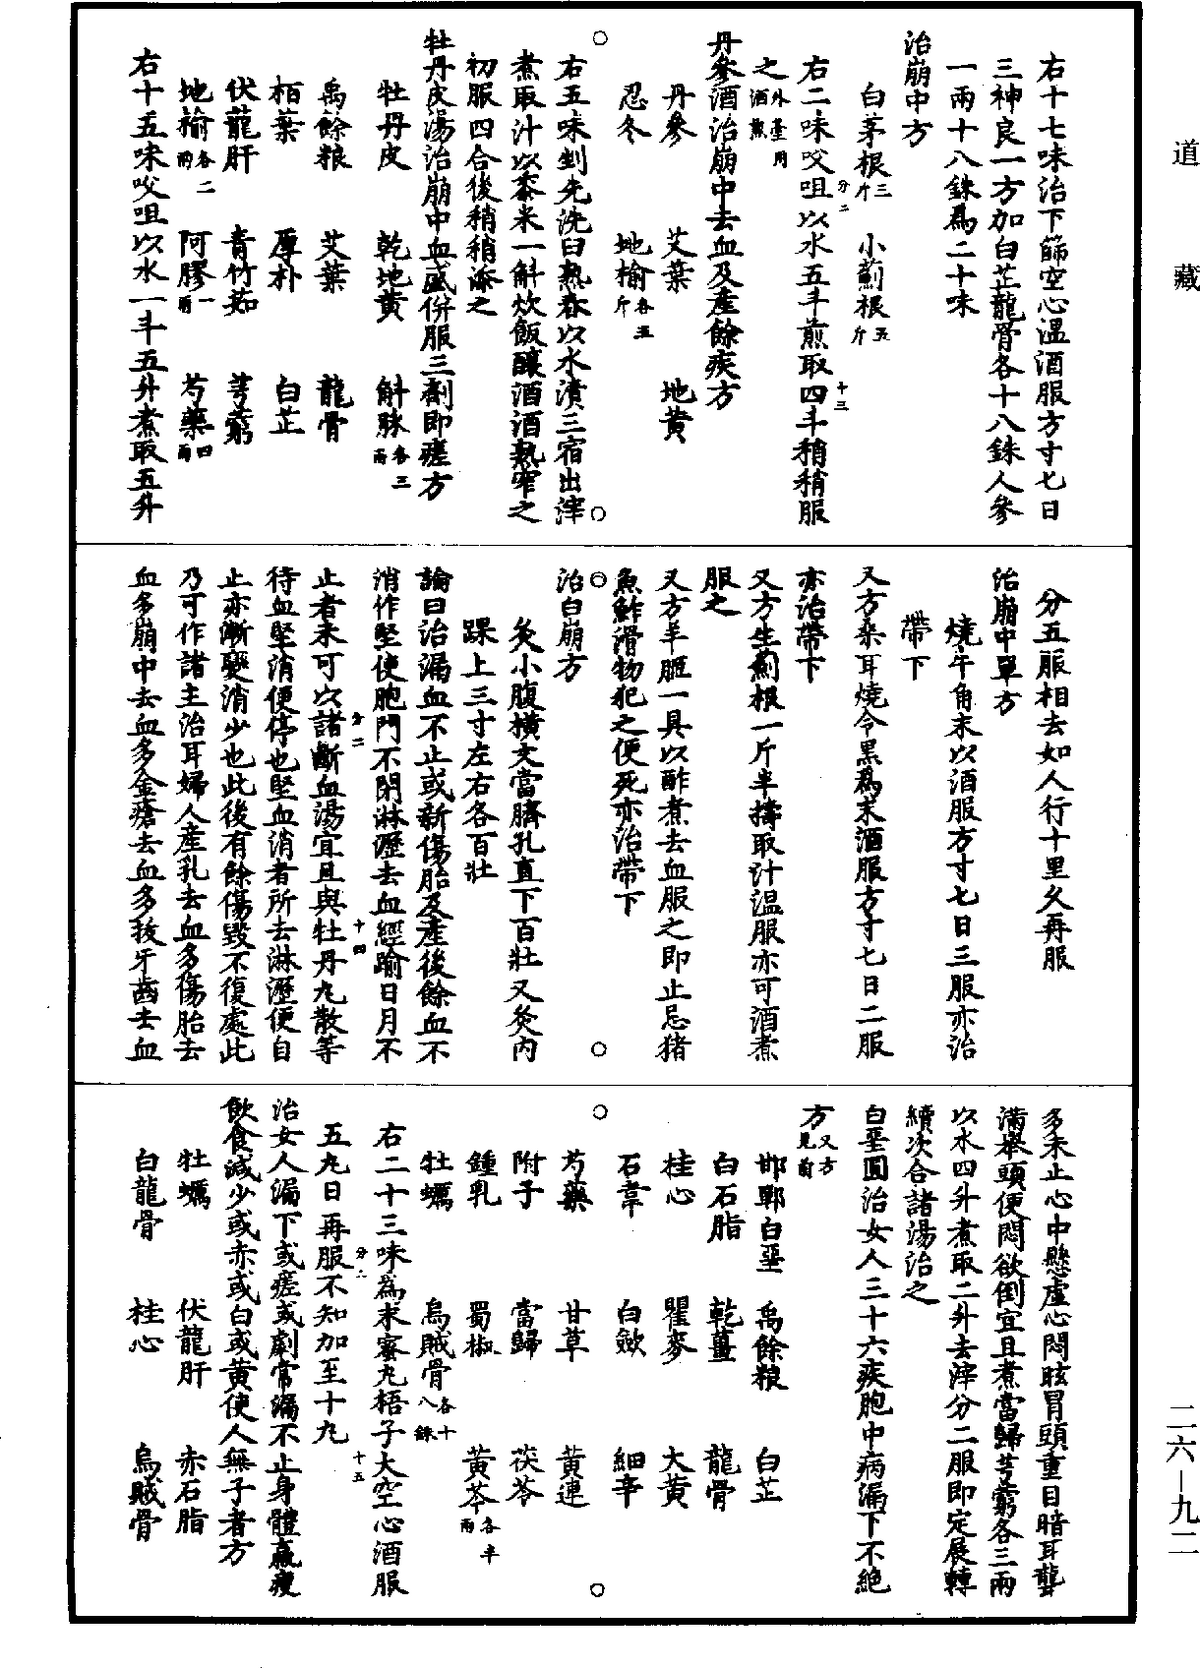 道藏
右十七味治下篩空心溫酒服方寸七日
三神良一方加白芷龍骨各十八銖人參
一兩十八銖為二十味
治崩中方
白茅根三斤 小薊根五斤
右二味㕮咀以水五斗煎取四斗稍稍服
之外臺用酒煎
丹參酒治崩中去血及產餘疾方
丹參 艾葉 地黃
忍冬 地榆各五斤
右五味剉先洗臼熟舂以水漬三宿出滓
煮取汁以黍米一斛炊飯釀酒酒熟窄之
初服四合後稍稍添之
牡丹皮湯治崩中血盛併服三劑即瘥方
牡丹皮 乾地黃 斛脉各三兩
禹餘粮 艾葉 龍骨
栢葉 厚朴 白芷
伏龍肝 青竹茹 芎藭
地榆各二兩 阿膠一兩 芍藥四兩
右十五味㕮咀以水一斗五升煮取五升
分五服相去如人行十里久再服
治崩中單方
燒牛角末以酒服方寸七日三服亦治
帶下
又方桑耳燒令黑為末酒服方寸七日二服
亦治帶下
又方生薊根一斤半擣取汁温服亦可酒煮
服之
又方羊胵一具以酢煮去血服之即止忌猪
魚鮓滑物犯之便死亦治帶下
治白崩方
灸小腹橫文當臍孔直下百壯又灸內
踝上三寸左右各百壯
論曰治漏血不止或新傷胎及產後餘血不
消作堅使胞門不閉淋瀝去血經踰日月不
止者未可以諸斷血湯宜且與牡丹丸散等
待血堅消便停也堅血消者所去淋瀝便自
止亦漸變消少也此後有餘傷毀不復處此
乃可作諸主治耳婦人產乳去血多傷胎去
血多崩中去血多金瘡去血多拔牙齒去血
多未止心中懸虛心悶眩冒頭重目暗耳聾
滿舉頭便悶欲倒宜且煮當歸芎藭各三兩
以水四升煮取二升去滓分二服即定展轉
續次合諸湯治之
白堊圓治女人三十六疾胞中病漏下不絕
方又方見前
邯鄲白堊 禹餘粮 白芷
白石脂 乾薑 龍骨
桂心 瞿麥 大黃
石韋 白蘞 細辛
芍藥 甘草 黃連
附子 當歸 茯苓
鍾乳 蜀椒 黃芩各半兩
牡蠣 烏賊骨各十八銖
右二十三味為末蜜丸梧子大空心酒服
五丸日再服不知加至十丸
治女人漏下或瘥或劇常漏不止身體羸瘦
飲食減少或赤或白或黃使人無子者方
牡蠣 伏龍肝 赤石脂
白龍骨 桂心 烏賊骨
分二
十三
分二
十四
分二
十五
二六—九二